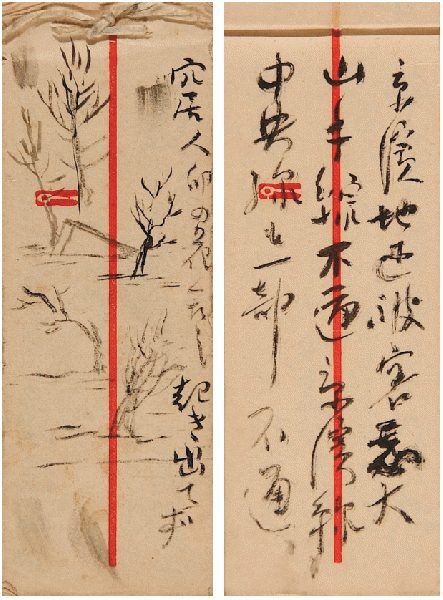 穴居人卯の花くたし 起き出でず
京濱地區被害甚大
山手線不通 京濱線
中央線も一部 不通